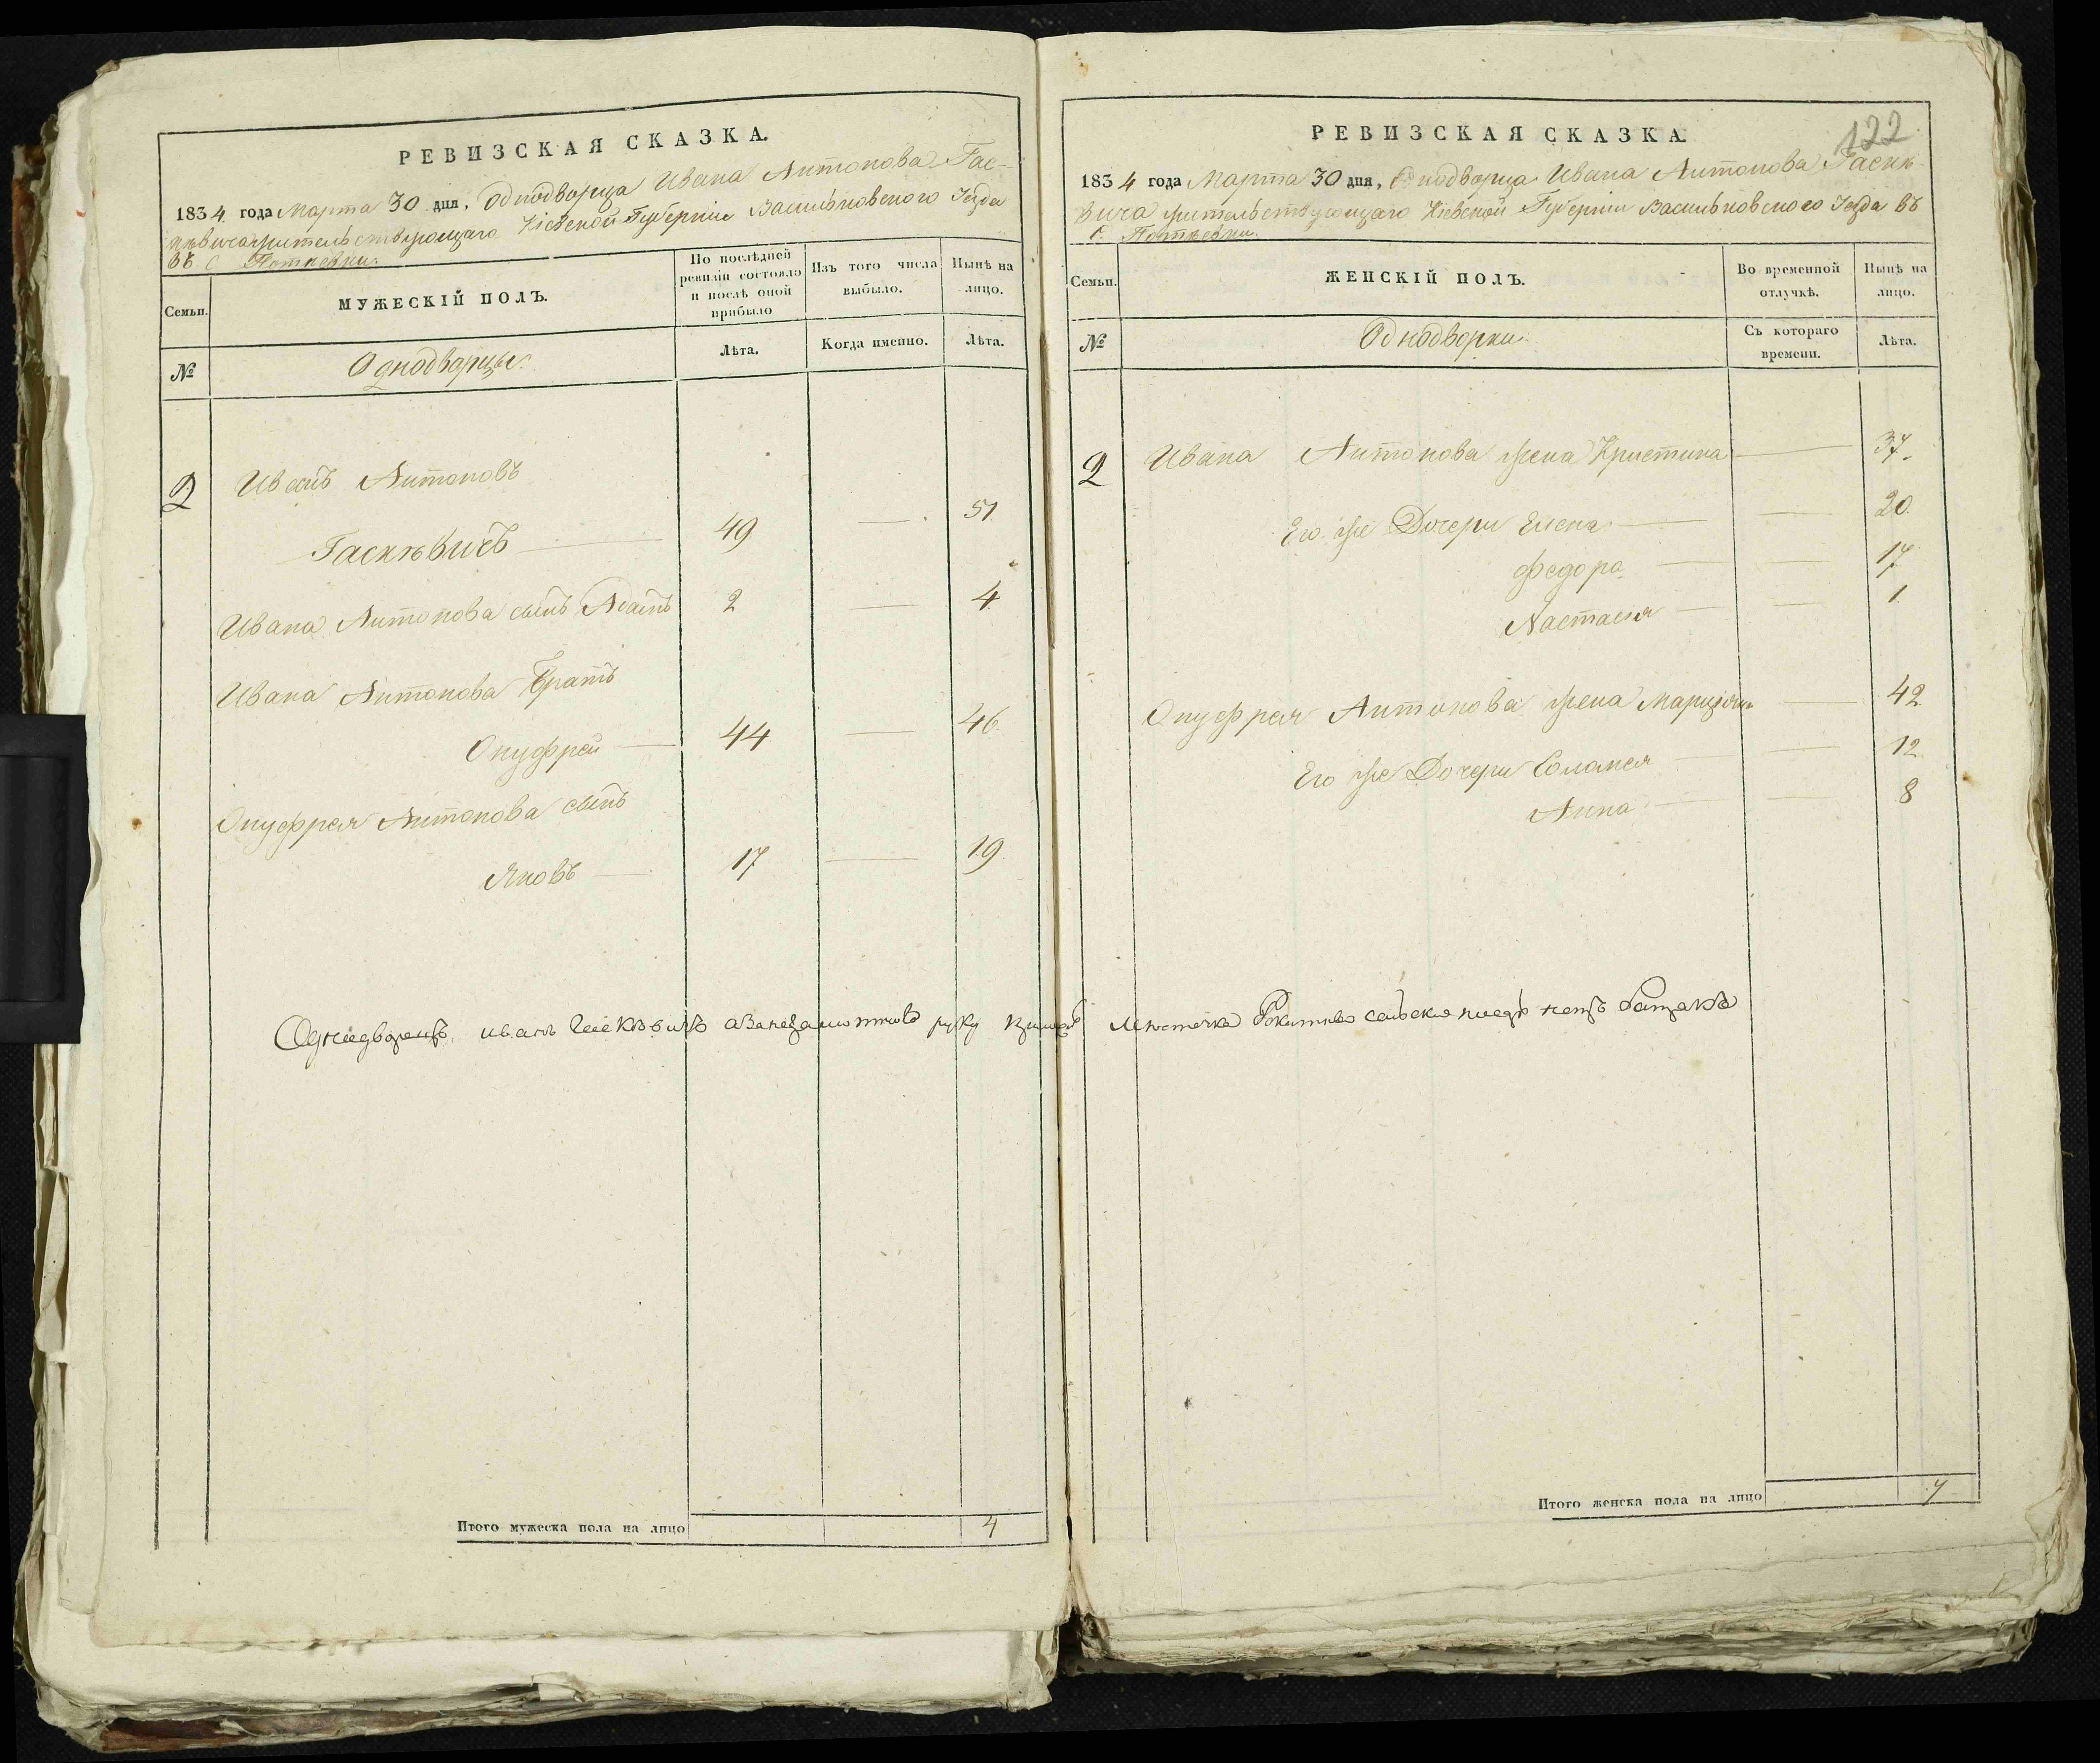 РЕВИЗСКАЯ СКАЗКА.
1834 года Марта 30 дня, Однодворца Ивана Антонова Гас-
кѣвича жительствующаго Кіевской Губерніи Васильковского Уезда
въ с. 
Семьи.
МУЖЕСКІЙ ПОЛЪ.
По послѣдней ревизіи состояло и послѣ оной прибыло
Изъ того числа выбыло.
Нынѣ на лицо.
№
Однодворцы.
Лѣта.
Когда именно.
Лѣта.
2 Иванъ Антоновъ
Гаскѣвичъ 49 51
Ивана Антонова сынъ Адамъ 2 4
Ивана Антонова Братъ
Онуфрей 44 46
Онуфрея Антонова сынъ
Яковъ 17 19
Однодворецъ иванъ руку
Итого мужеска пола на лицо 4
122
РЕВИЗСКАЯ СКАЗКА.
1834 года Марта 30 дня, Однодворца Ивана Антонова Гаскѣ-
вича жительствующаго Кіевской Губерніи Васильковского Уезда въ
с.
Семьи.
ЖЕНСКІЙ ПОЛЪ.
Во временной отлучкѣ.
Нынѣ на лицо.
№
Однодворки.
Съ котораго времени.
Лѣта.
2 Ивана Антонова жена Кристина 37
Его же Дочери Елена 20
Федора 17
Настасия 1
Онуфрея Антонова жена 42
Его же Дочери Соломея 12
Анна 8
местечка
Итого женска пола на лицо 7